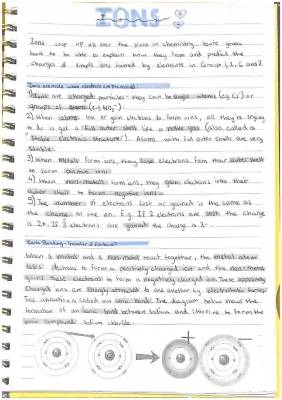 IONS
Ions crop up all over the place in chemistry. You're gonna
have to be able to explain how they form and predict the
charges of simple ions formed by elements in Groups 1, 2, 6 and 7.
Ions are made when electrons are transferred
1) Ions are charged particles - they can be single atoms (e.g. Cl⁻) or
groups of atoms (e.g. NO₃⁻).
2) When atoms lose or gain electrons to form ions, all they're trying
to do is get a full outer shell like a noble gas (also called a
"stable electronic structure"). Atoms with full outer shells are very
stable.
3) When metals form ions, they lose electrons from their outer shell
to form positive ions.
4) When non-metals form ions, they gain electrons into their
outer shell to form negative ions.
5) The number of electrons lost or gained is the same as
the charge on the ion. E.g. If 2 electrons are lost the charge
is 2+. If 3 electrons are gained the charge is 3-.
Ionic Bonding - Transfer of Electrons
When a metal and a non-metal react together, the metal atom
loses electrons to form a positively charged ion and the non-metal
gains these electrons to form a negatively charged ion. These oppositely
charged ions are strongly attracted to one another by electrostatic forces.
This attraction is called an ionic bond. The diagram below shows the
formation of an ionic bond between sodium and chlorine to form the
ionic compound sodium chloride.
+
-